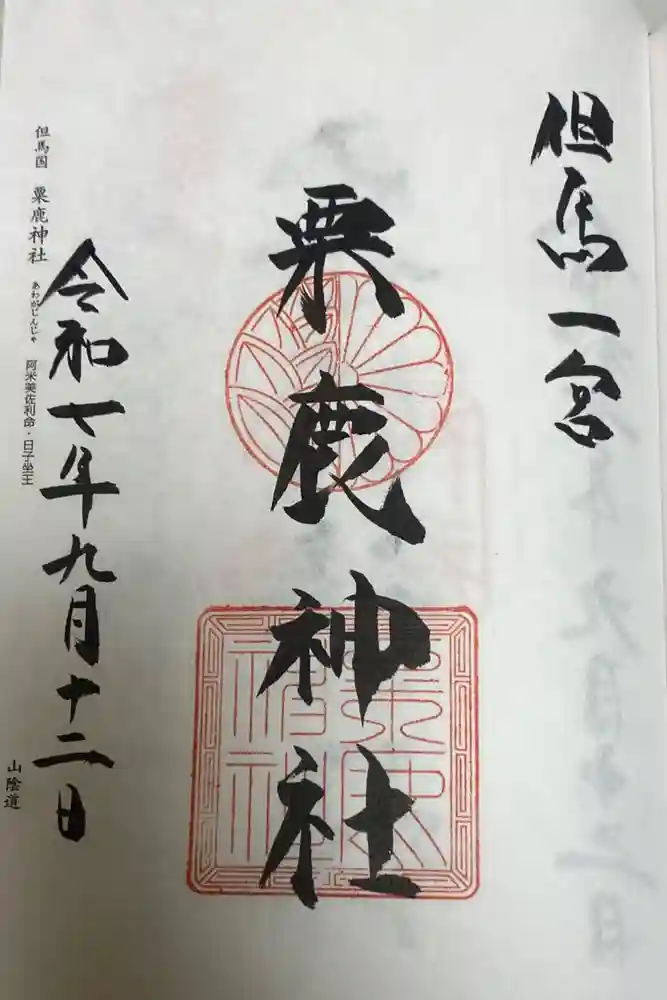 但馬一宮
粟鹿神社
令和七年九月十二日
但馬国 粟鹿神社 あわがじんじゃ 阿米美佐利命・日子坐王
山陰道
粟鹿
神社